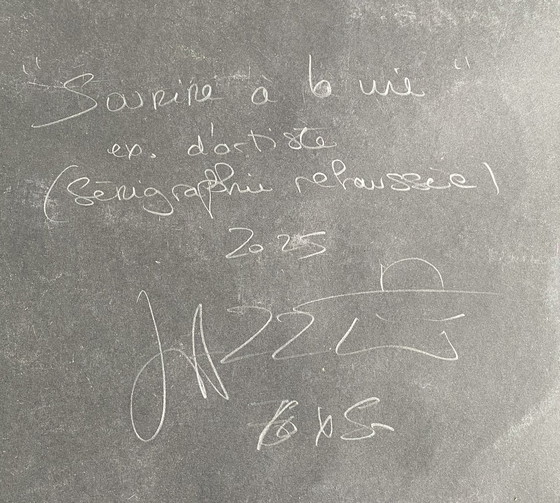 "Sourire à la vie"
ex. d'artiste
(Sérigraphie rehaussée)
2025
JAZZI